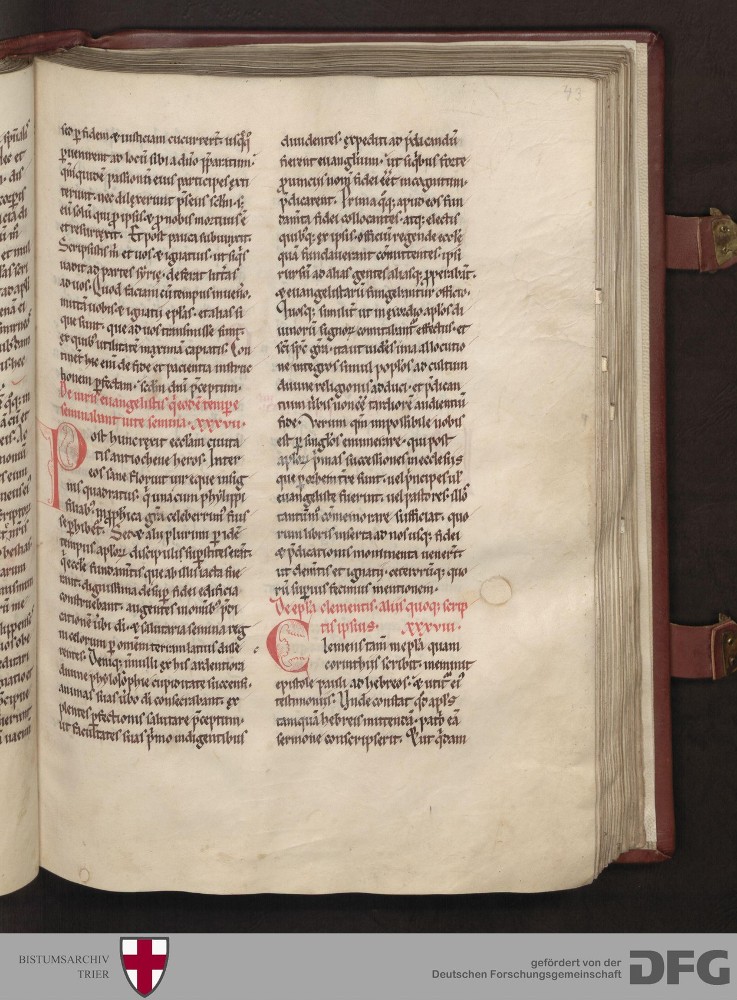 43
sed p fidem & iusticiam cucurrert usq;q;
puenirent ad locū sibi a dño pparatum.
qm̄ quidē passionū eius participes exti
terunt. nec dilexerunt psens sclm. sȝ
eū solū qui p ipsis & p nobis mortuus ē
et resurrexit. Et post pauca subiungit.
Scripsistis m et uos & ignatius. ut siqis
uadit ad partes syrię. deferat litt̄as
ad uos. Quod faciam cū tempus inuenio.
mittā uobis & ignatii eplas. et alias si
que sunt. que ad uos transmisse sunt.
ex quib; utilitatē maximā capiatis. Con
tinet hic enī de fide et pacientia instruc
tionem pfectam. scdm dni pceptum.
De uiris euangelistis qi eodē tempore
seminabant uite semina. xxxvii.
Post hunc rexit ecclam ciuita
tis antiochene heros. Inter
eos sane floruit uir eque insig
nis quadratus. q̇ una cum phylippi
filiab; in pphica gr̄a celeberrim' fuis
se phibet. Sed & alii plurimi p idē
tempus aplor discipuli supstites erāt.
q̇ eccle fundamtis que ab illis iacta fue
rant. dignissima desup fidei edificia
construebant. augentes in omnib; pdi
cationē ubi dī. & salutaria semina reg
ni celorum p omnem terram latius disse
rentes. Deniq; nnulli ex his ardentiora
diuine phylosophie cupiditate succensi.
animas suas ubo dī consecrabant. ex
plentes pfectionis salutare pceptum.
ut facultates suas pmo indigentibus
diuidentes. expediti ad pdicandū
fierent euanglium. ut siq̇bus forte
puinciis nom fidei eēt incognitum.
pdicarent. Prima q̇q; apud eos fun
damta fidei collocantes. atq; electis
quibq; ex ipsis. officiū regende eccle
quā fundauerant comittentes. ipsi
rursū ad alias gentes aliasq; pperabāt.
& euangelistarū fungebantur officio.
Quosq; similit' ut in exordio aplos di
uinorū signor comitabant' effectus. et
sc̄i spc gr̄a. ita ut uideres una allocutio
ne integros simul poplos ad cultum
diuine religionis adduci. et pdican
tium ubis non eē tardiorē audientiū
fidē. Verum qm̄ impossibile nobis
est p singlos enumerare. qui post
aplor pmas successiones in ecclesiis
que p orbem tre sunt. uel pncipes ul'
euangeliste fuerunt. uel pastores. illos
tantūm comemorare sufficiat. quo
rum libris inserta ad nos usq; fidei
& pdicationis monimenta uenert'
ut clemtis et ignatii. ceterorūq; quo
rū supius fecimus mentionem.
De epla clementis. aliis quoq; scrip
tis ipsius. xxxviii.
Clemens tam in epla quam
corinthiis scribit. meminit
epistole pauli ad hebreos. & utit' ei'
testimoniis. Unde constat qd apls
tamquā hebreis mittendā. patō eā
sermone conscripserit. & ut q̇dam
BISTUMSARCHIV
TRIER
gefördert von der
Deutschen Forschungsgemeinschaft
DFG